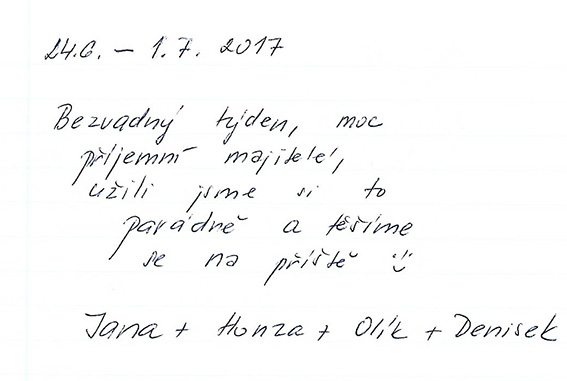 24.6. – 1.7. 2017
Bezvadný týden, moc
příjemní majitelé,
užili jsme si to
parádně a těšíme
se na příště ☺
Jana + Honza + Olík + Denisek